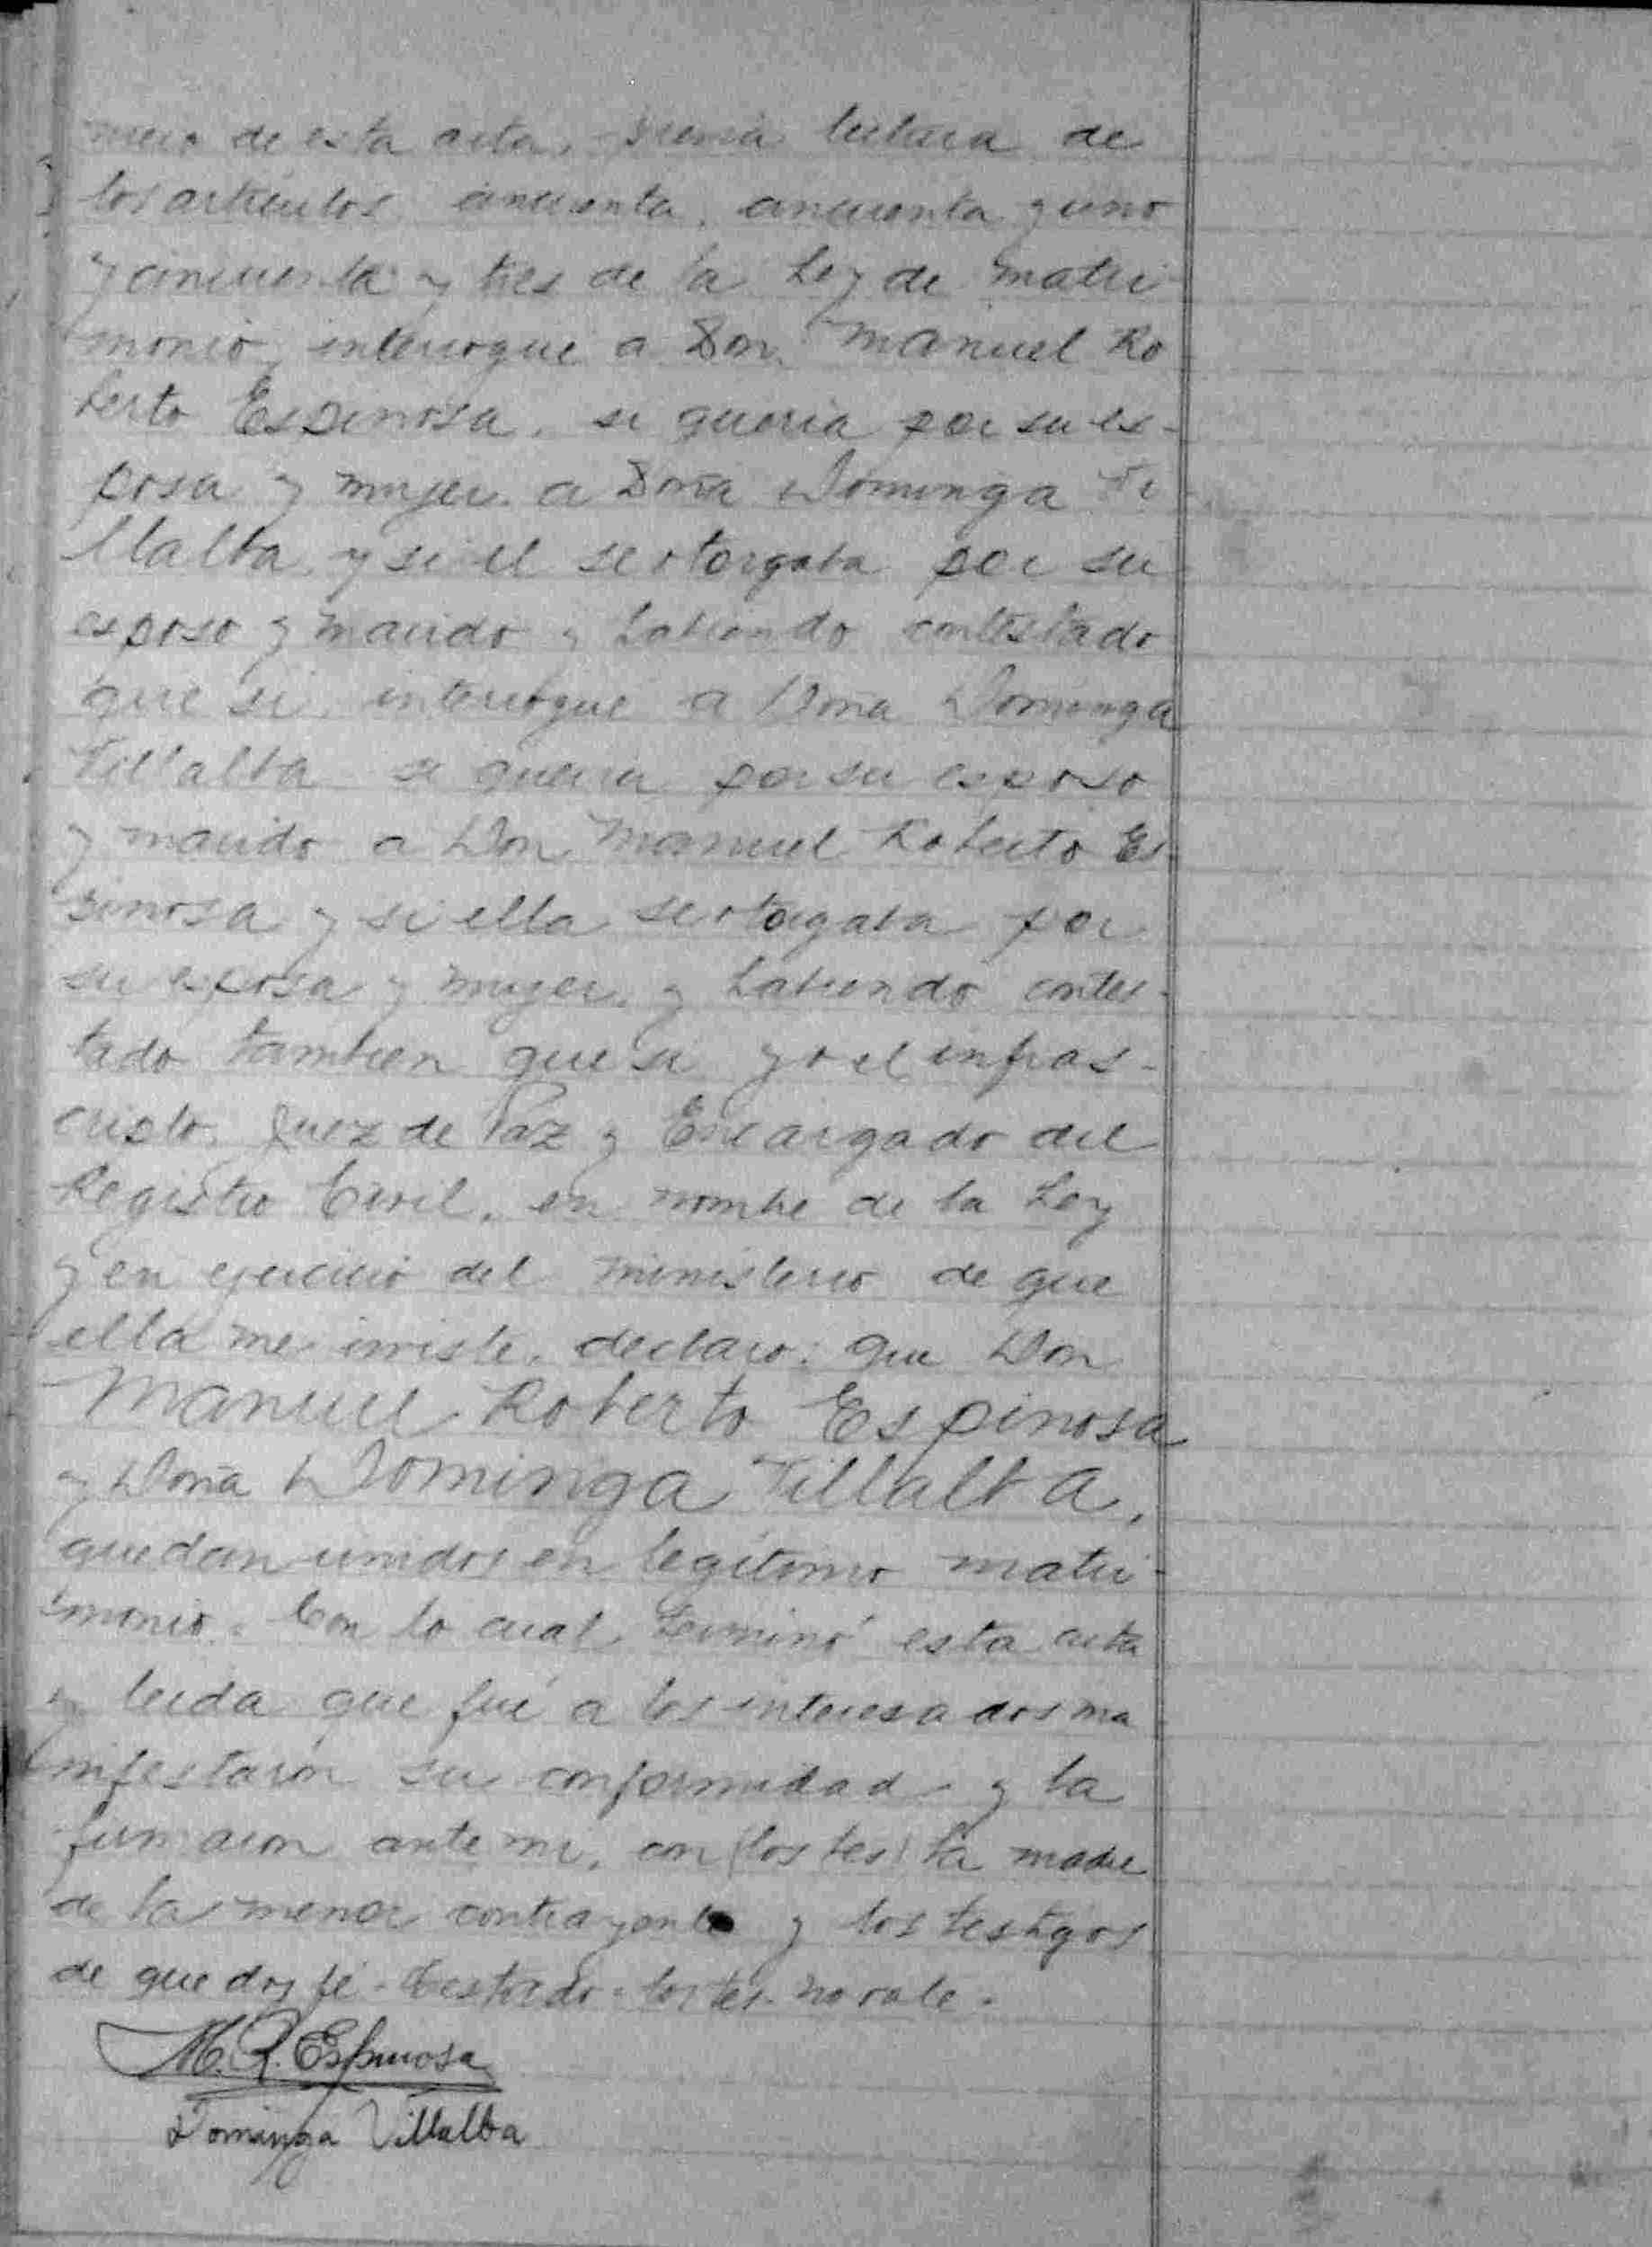 mero de esta acta, previa lectura de
los articulos cincuenta, cincuenta y uno
y cincuenta y tres de la Ley de matri-
monio, interrogue a Don Manuel Ro
berto Espinosa, si queria por su es-
posa y mujer a Doña Dominga Vi-
llalba, y si el se otorgaba por su
esposo y marido y habiendo contestado
que si, interrogue a Doña Dominga
Villalba si queria por su esposo
y marido a Don Manuel Roberto Es-
pinosa y si ella se otorgaba por
su esposa y mujer, y habiendo contes-
tado tambien que si yo el infras-
cripto, Juez de Paz y Encargado del
Registro Civil, en nombre de la Ley
y en ejercicio del ministerio de que
ella me inviste, declaro: que Don
Manuel Roberto Espinosa
y Doña Dominga Villalba,
quedan unidos en legítimo matri-
monio. Con lo cual terminó esta acta
y leida que fué a los interesados ma
nifestaron su conformidad y la
firmaron ante mi, con (los tes) la madre
de la menor contrayente y los testigos
de que doy fé. Testado-los tes-no vale.
M. R. Espinosa
Dominga Villalba